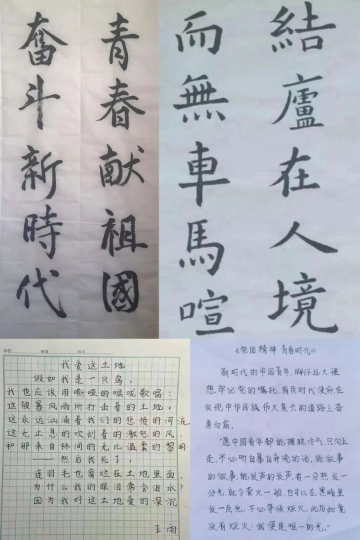 青春献祖國
奮斗新時代
結廬在人境
而無車馬喧
我爱这土地
假如我是一只鸟,
我也应该用嘶哑的喉咙歌唱:
这被暴风雨所打击着的土地,
这永远汹涌着我们的悲愤的河流,
这无止息地吹刮着的激怒的风,
和那来自林间的无比温柔的黎明
——然后我死了,
连羽毛也腐烂在土地里面
为什么我的眼里常含泪水
因为我对这土地爱得深沉
新时代的中国青年,胸怀远大理
想,牢记党的嘱托,肩负时代使命在
实现中华民族伟大复兴的道路上奋
勇向前。
"愿中国青年都能摆脱冷气,只向上
走,不必听自暴自弃者的话。能做事
的做事,能发声的发声。有一分热,发一
分光,就令萤火一般,也可以在黑暗里
发一点光,不必等候炬火。此后如竟
没有炬火,我便是唯一的光。"